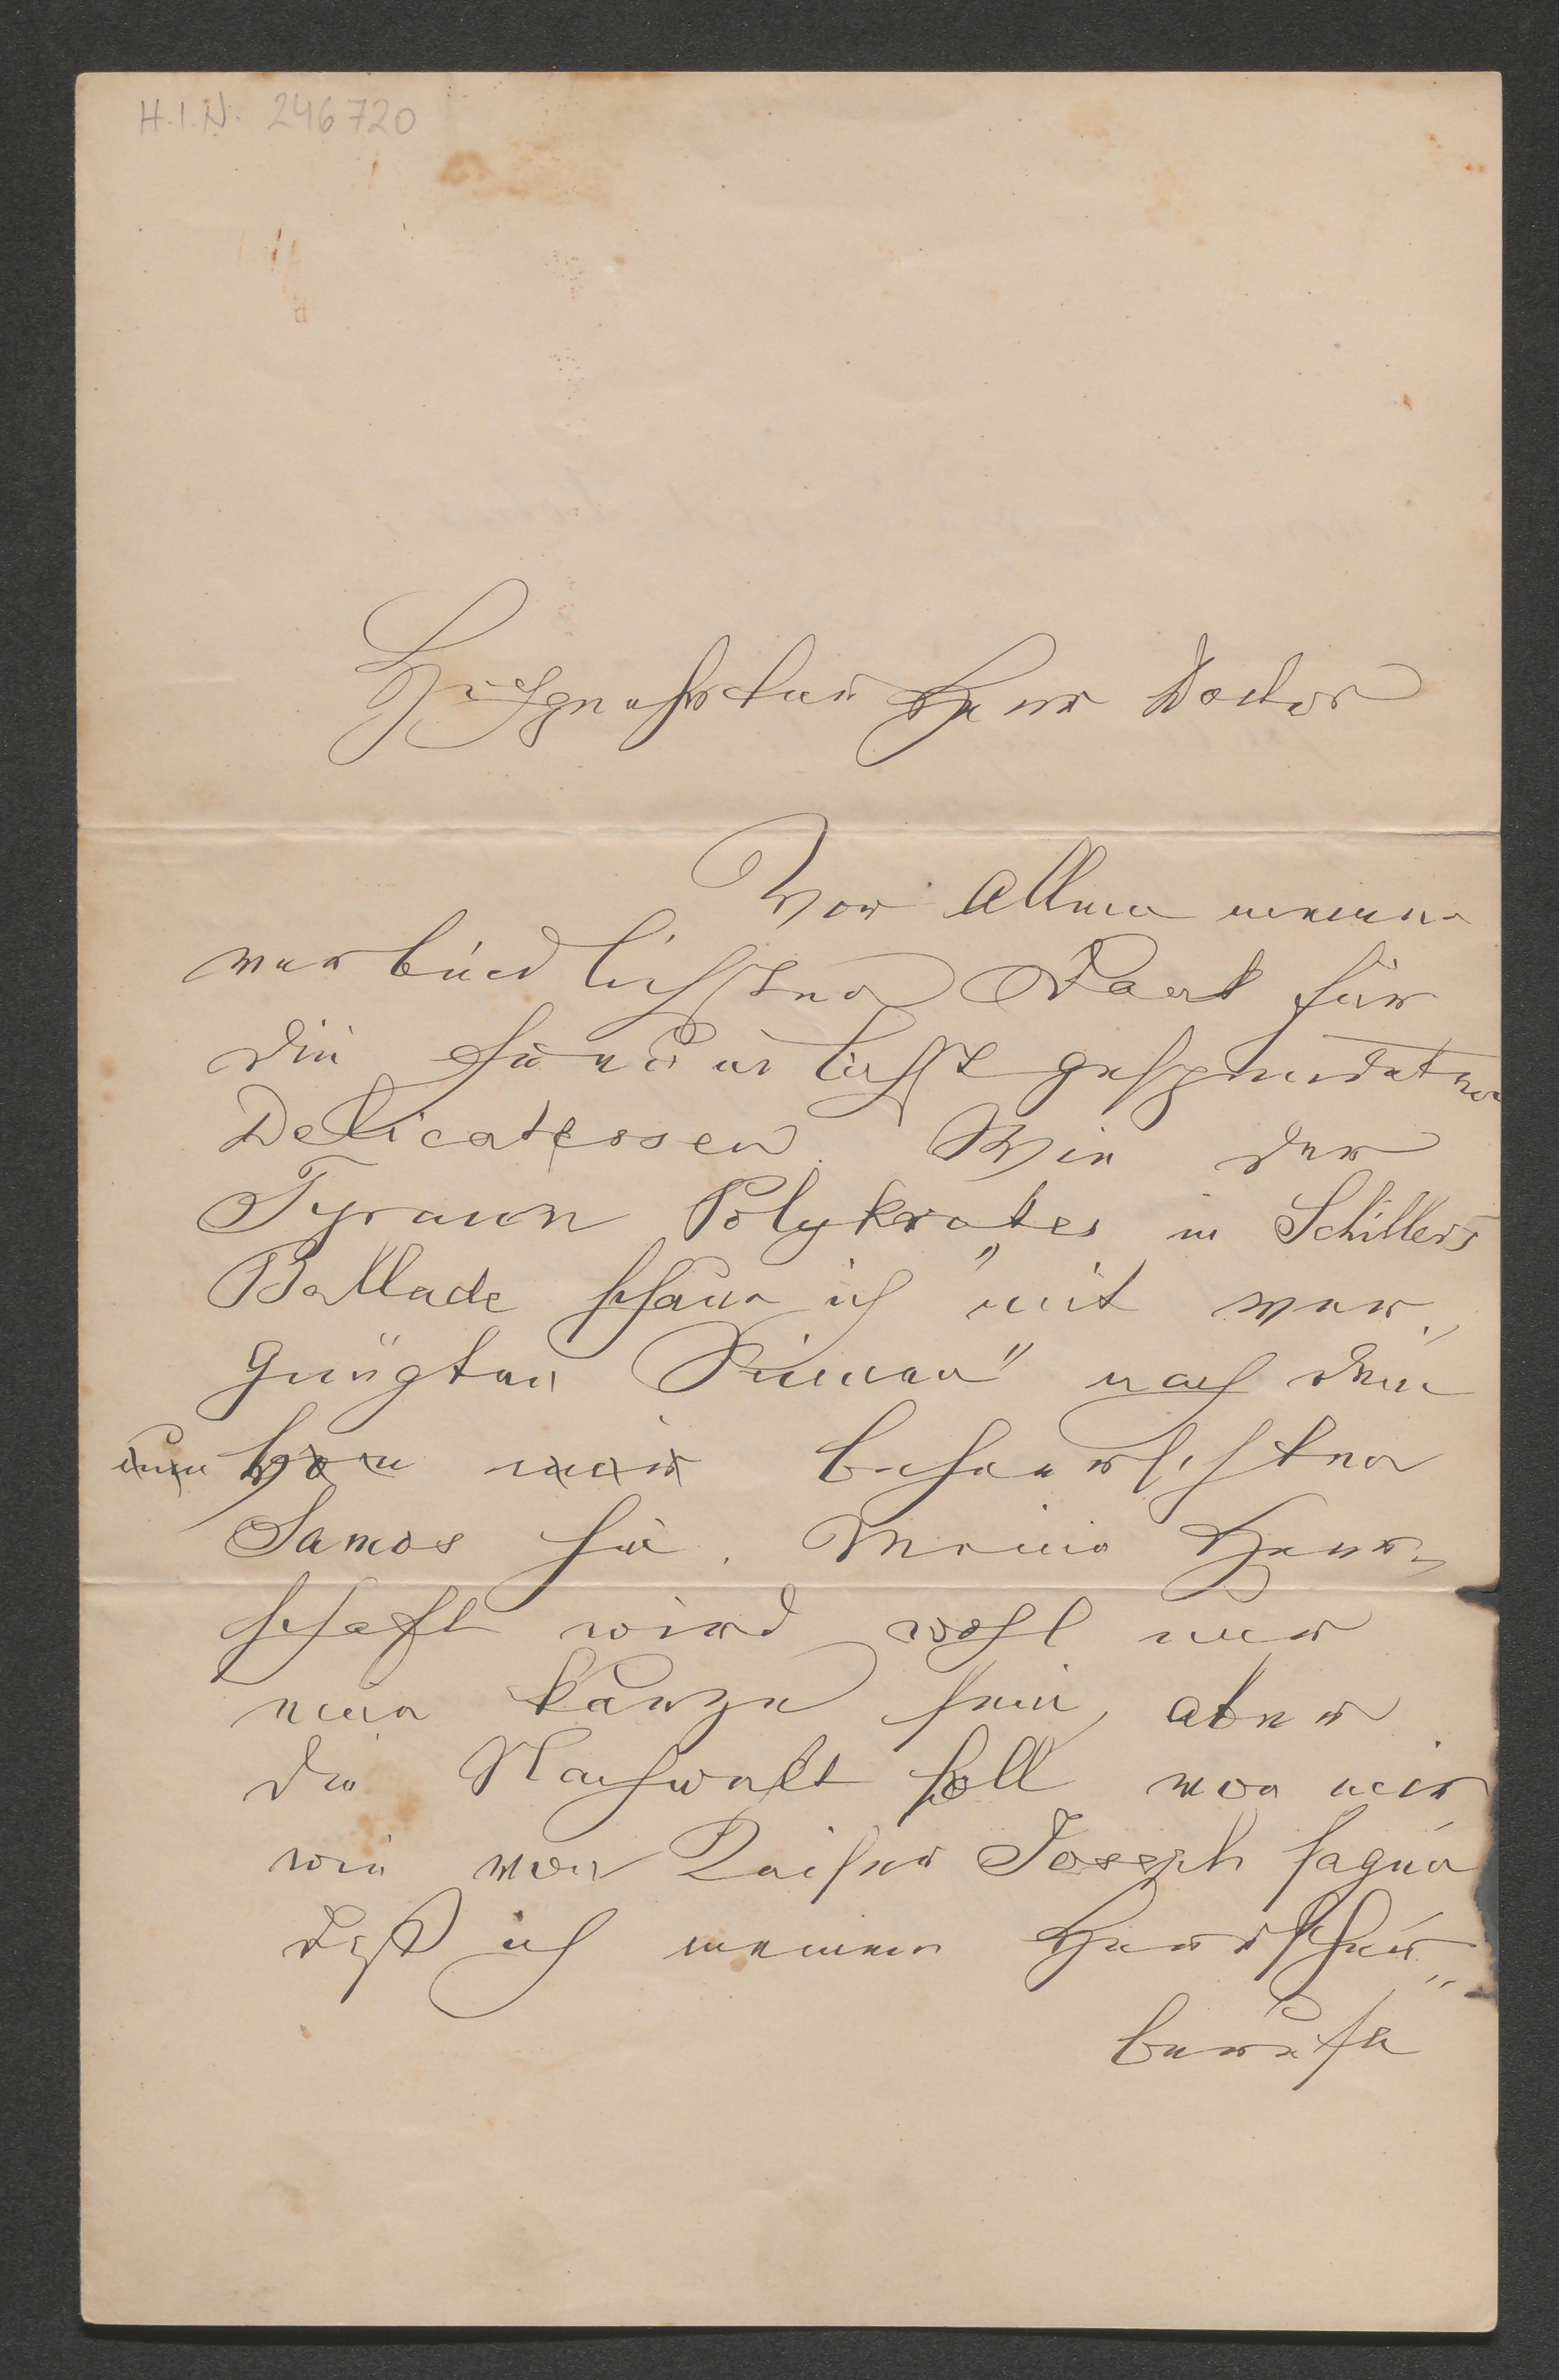 H.I.N. 246720
Hochgeehrter Herr Doctor
Vor Allem meinen
verbindlichsten Dank für
die freundlichst gespendeten
Delicatessen. Wie der
Tyrann Polykrates in Schillers
Ballade schaue ich "mit ver-
gnügten Sinnen" nach dem
von mir beherrschten
Samos hin. Meine Herr-
schaft wird wohl nur
eine kurze sein, aber
die Nachwelt soll von mir
wie von Kaiser Joseph sagen
daß ich meinen Herrscher-
berufe